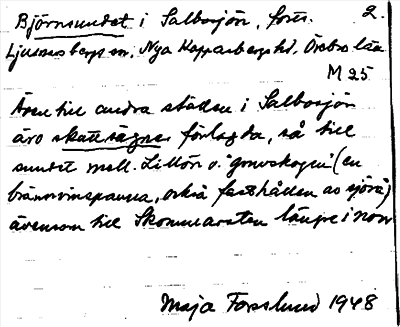 Björnsundet i Salbosjön, forts. 2.
Ljusnarsbergs sn, Nya Kopparbergs hd, Örebro län
M 25
Även till andra ställen i Salbosjön
äro skattsägner förlagda, så till
sundet mell. Lillön o.
brännvinspanna, också fasthållen av sjörå)
ävensom till längre i norr
Maja Forsslund 1948